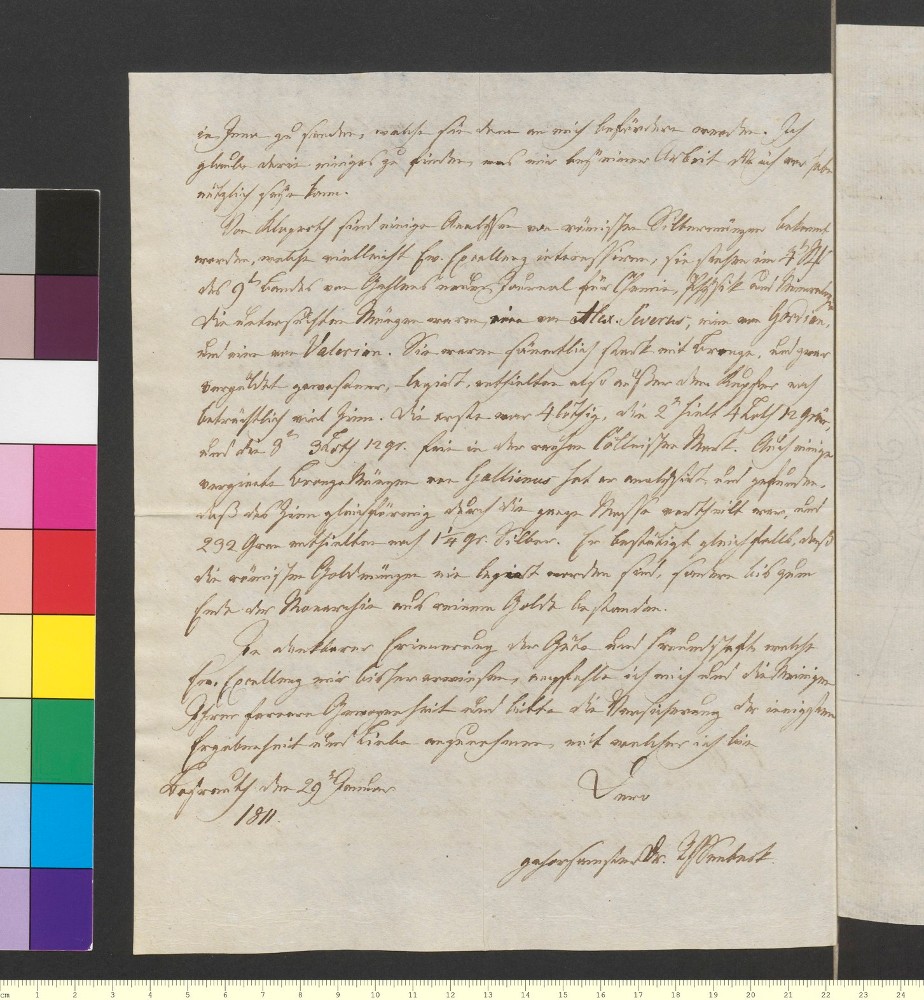 in Jena zu senden, welche sie dann an mich befördern werden. Ich
glaube darin einiges zu finden, was mir bey einer Arbeit die ich vor habe
nützlich seyn kann.
Von Klaproth sind einige Analysen von römischen Silbermünzen bekannt
worden, welche vielleicht Ew. Excellenz interessiren, sie stehen im 4t
des 9t Bandes von Gehlens neues Journal für Chemie, Physik und Mineralogie
Die untersuchten Münzen waren, eine von Alex. Severus, eine von Gordian,
und eine von Valerian. Sie waren sämmtlich stark mit Bronze, und zwar
gewesener, legirt, enthielten also außer dem Kupfer noch
beträchtlich viel Zinn. Die erste war 4 löthig, die 2te hielt 4 Loth 12 grän,
und die 3te 3 Loth 12 gr. fein in der rauhen Cöllnischen Mark. Auch einige
Bronze Münzen von Gallienus hat er analysirt, und gefunden,
daß das Zinn gleichförmig durch die ganze Masse vertheilt war, und
232 Gran enthielten noch 1 1/4 gr. Silber. Er bestätigt gleichfalls, daß
die römischen Goldmünzen nie legirt worden sind, sondern bis zum
Ende der Monarchie aus reinem Golde bestanden.
In dankbarer Erinnerung der Güte und Freundschaft welche
Ew. Excellenz mir bisher erwiesen, empfehle ich mich und die Meinigen
Ihrer fernern Gewogenheit und bitte die Versicherung der innigsten
Ergebenheit und Liebe anzunehmen, mit welcher ich bin
Bayreuth den 29t Januar
Dero
1811.
gehorsamster Dr.